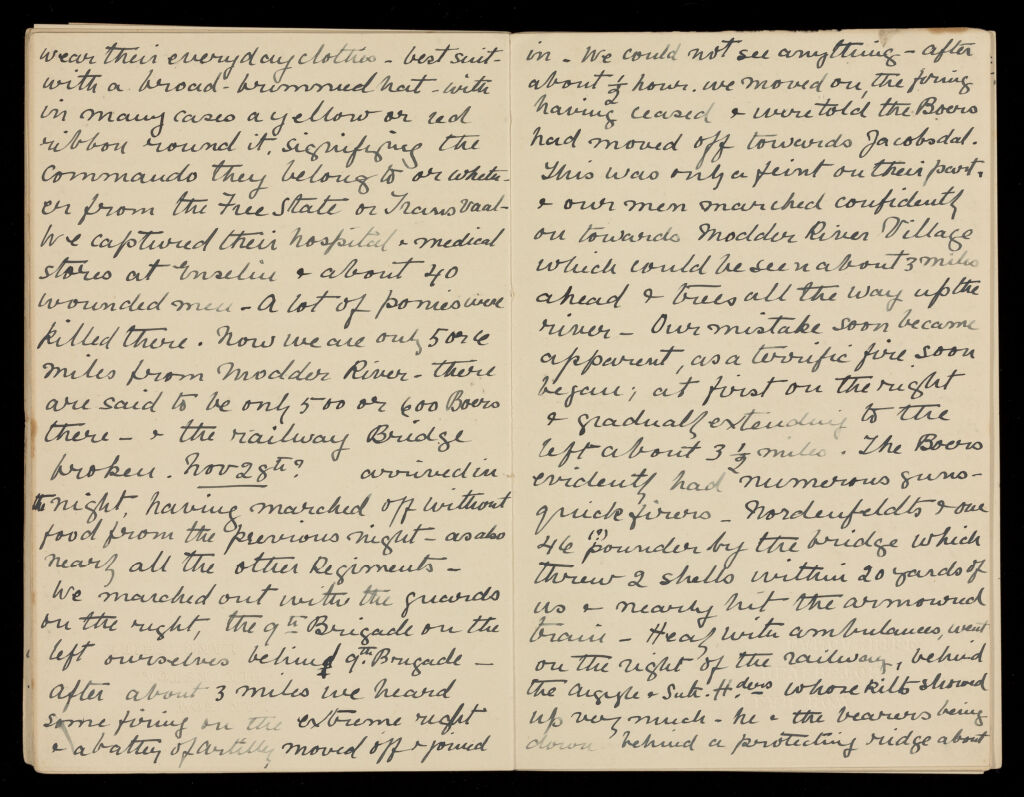 wear their everyday clothes - best suit -
with a broad-brimmed hat - with
in many cases a yellow or red
ribbon round it, signifying the
Commando they belong to or wheth-
er from the Free State or Transvaal -
We captured their hospital & medical
stores at Enselin & about 40
wounded men - A lot of ponies were
killed there. Now we are only 5 or 6
miles from Modder River - there
are said to be only 500 or 600 Boers
there - & the railway Bridge
broken. Nov 28th? arrived in
the night, having marched off without
food from the previous night - as also
nearly all the other Regiments -
We marched out with the guards
on the right, the 9th Brigade on the
left ourselves behind 9th Brigade -
after about 3 miles we heard
some firing on the extreme right
& a battery of artillery moved off & joined
in - We could not see anything - after
about ½ hour. we moved on, the firing
having ceased & were told the Boers
had moved off towards Jacobsdal.
This was only a feint on their part.
& our men marched confidently
on towards Modder River Village
which could be seen about 3 miles
ahead & trees all the way up the
river - Our mistake soon became
apparent, as a terrific fire soon
began; at first on the right
& gradually extending to the
left about 3 ½ miles. The Boers
evidently had numerous guns -
quickfirers - Nordenfeldts & one
46 (?) pounder by the bridge which
threw 2 shells within 20 yards of
us & nearly hit the armoured
train - Healy with ambulances, went
on the right of the railway, behind
the Argyle & Suth. Hders whose kilts showed
up very much - he & the bearers being
down behind a protecting ridge about